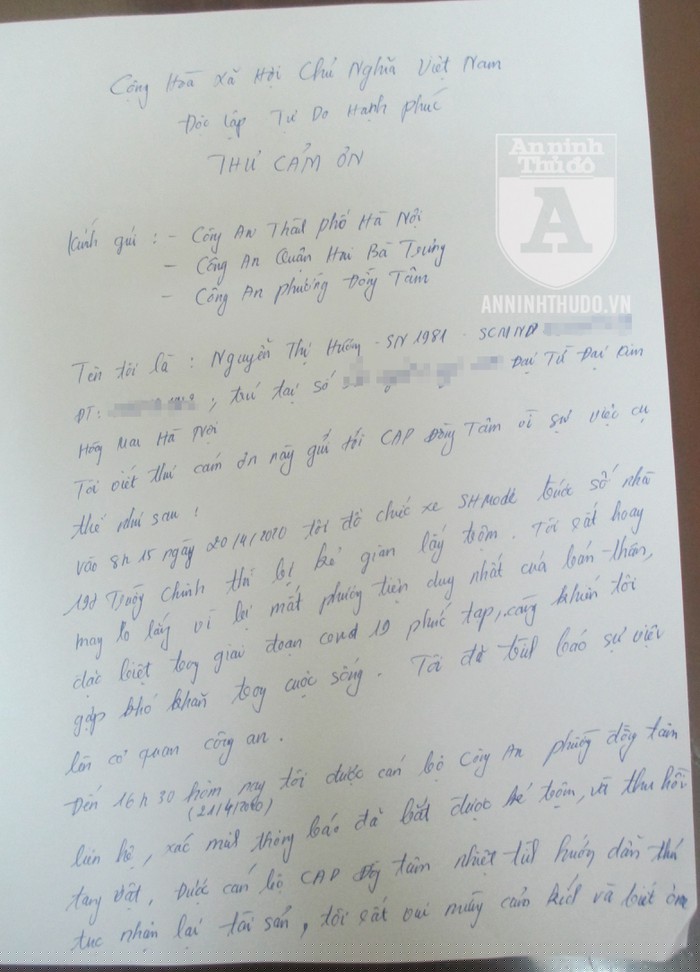 Cộng Hòa Xã Hội Chủ Nghĩa Việt Nam
Độc lập Tự Do Hạnh phúc
THƯ CẢM ƠN
An ninh
Thủ đô
A
ANNINHTHUDO.VN
Kính gửi : - Công An Thành phố Hà Nội
- Công An Quận Hai Bà Trưng
- Công An phường Đồng Tâm
Tên tôi là : Nguyễn Thị Hường - SN 1981 - SCMND
ĐT: ; trú tại số Đại Từ Đại Kim
Hoàng Mai Hà Nội
Tôi viết thư cảm ơn này gửi tới CAP Đồng Tâm vì sự việc cụ
thể như sau :
Vào 8h 15 ngày 20/4/2020 tôi đỗ chiếc xe SHmode trước số nhà
19d Trường Chinh thì bị kẻ gian lấy trộm. Tôi rất hoang
mang lo lắng vì bị mất phương tiện duy nhất của bản thân,
đặc biệt trong giai đoạn covid 19 phức tạp, càng khiến tôi
gặp khó khăn trong cuộc sống. Tôi đã trình báo sự việc
lên cơ quan công an.
Đến 16h 30 hôm nay tôi được cán bộ Công An phường đồng tâm
(21/4/2020)
liên hệ, xác minh thông báo đã bắt được kẻ trộm, và thu hồi
tang vật, Được cán bộ CAP Đồng tâm nhiệt tình hướng dẫn thủ
tục nhận lại tài sản, tôi rất vui mừng cảm kích và biết ơn